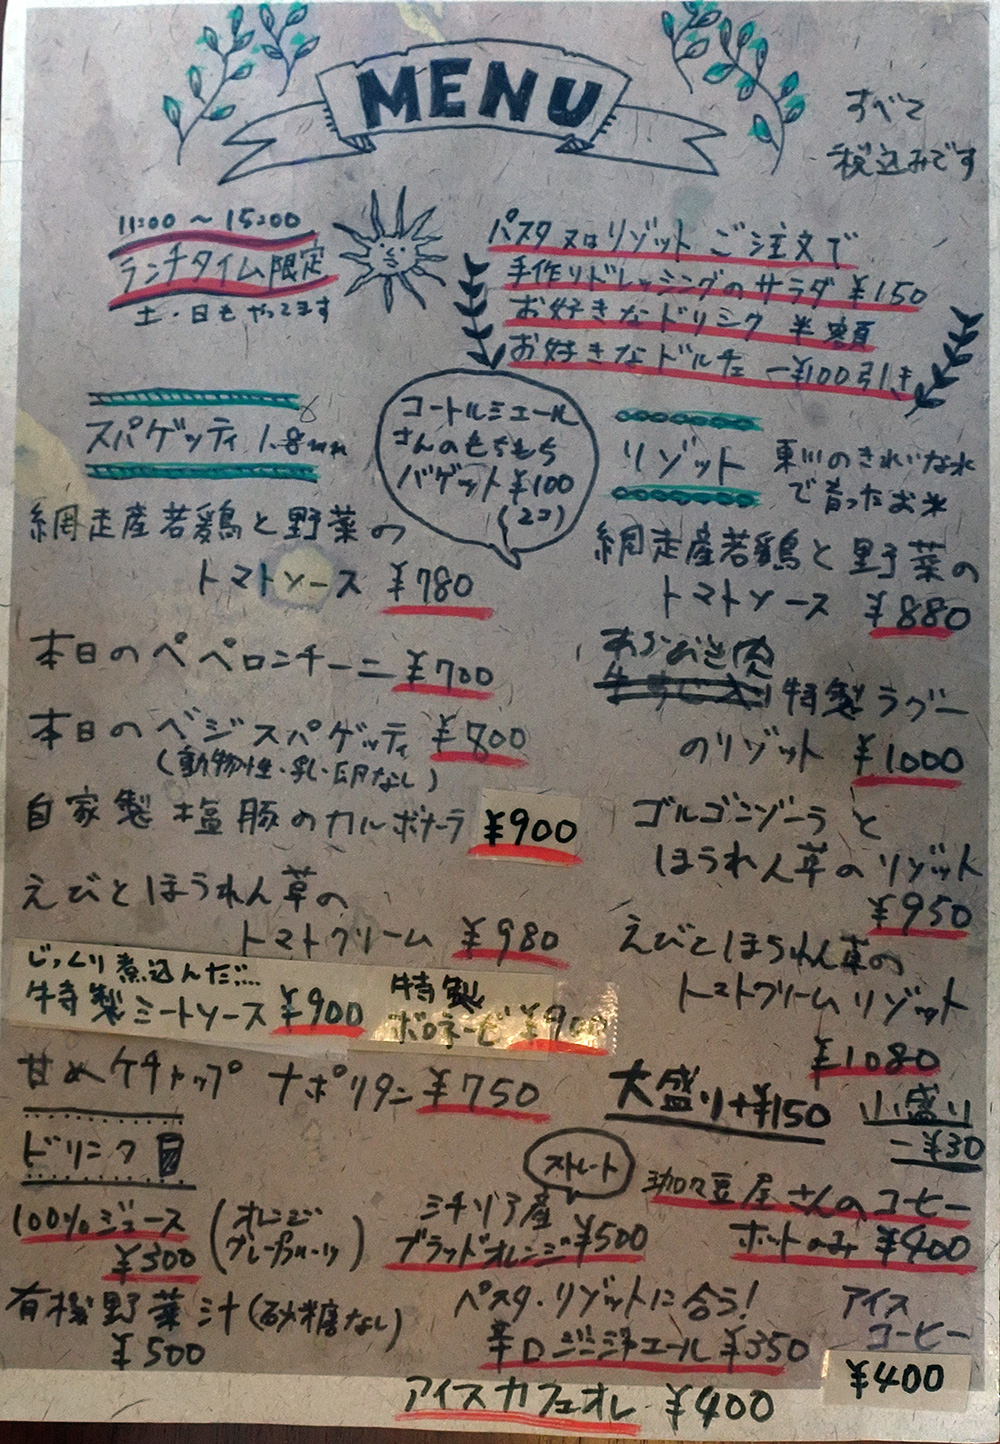 MENU
すべて
税込みです
11:00～15:00
ランチタイム限定
土・日もやってます
パスタ又はリゾットご注文で
手作りドレッシングのサラダ ¥150
お好きなドリンク 半額
お好きなドルチェ -¥100引き
スパゲッティ 1.8mm
網走産若鶏と野菜の
トマトソース ¥780
本日のペペロンチーニ ¥700
本日のベジスパゲッティ ¥800
(動物性・乳・卵なし)
自家製塩豚のカルボナーラ ¥900
えびとほうれん草の
トマトクリーム ¥980
じっくり煮込んだ…
特製ミートソース ¥900
特製
ボロネーゼ ¥900
甘めケチャップ ナポリタン ¥750
コートルミエール
さんのもちもち
バゲット ¥100
(2コ)
リゾット
東川のきれいな水
で育ったお米
網走産若鶏と野菜の
トマトソース ¥880
あらびき肉
特製ラグー
のリゾット ¥1000
ゴルゴンゾーラと
ほうれん草のリゾット
¥950
えびとほうれん草の
トマトクリームリゾット
¥1080
大盛り+¥150
小盛り
-¥30
ドリンク
100%ジュース
¥300
(オレンジ
グレープフルーツ)
有機野菜汁(砂糖なし)
¥500
ストレート
シチリア産
ブラッドオレンジ ¥500
珈琲豆屋さんのコーヒー
ホットのみ ¥400
パスタ・リゾットに合う!
辛口ジンジャエール ¥350
アイス
コーヒー
¥400
アイスカフェオレ ¥400